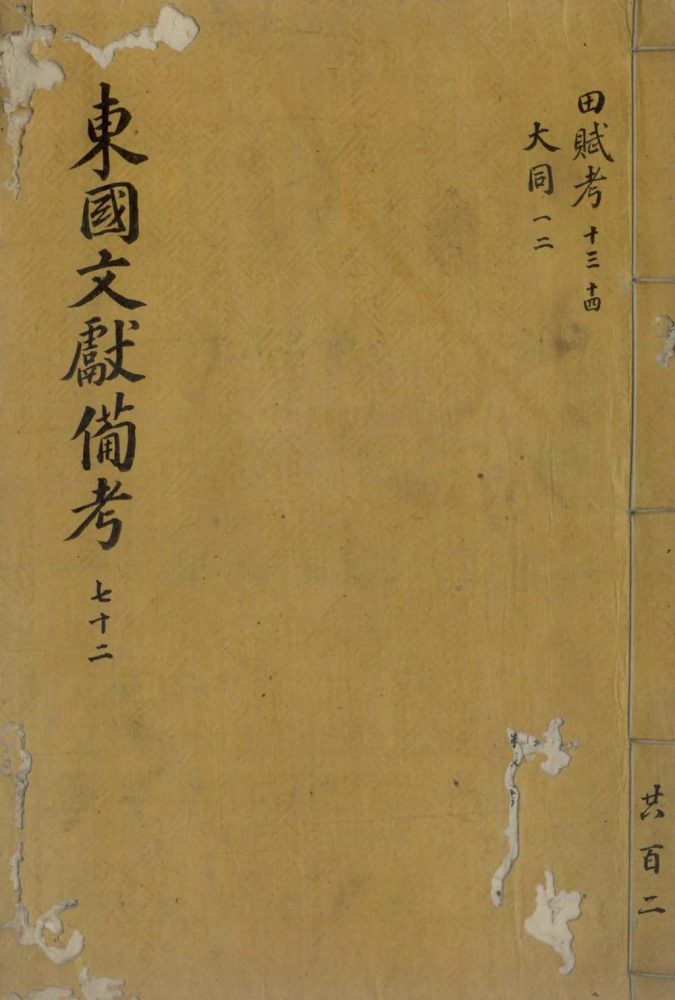 田賦考 十三 十四
大同 一二
東國文獻備考 七十二
共百二